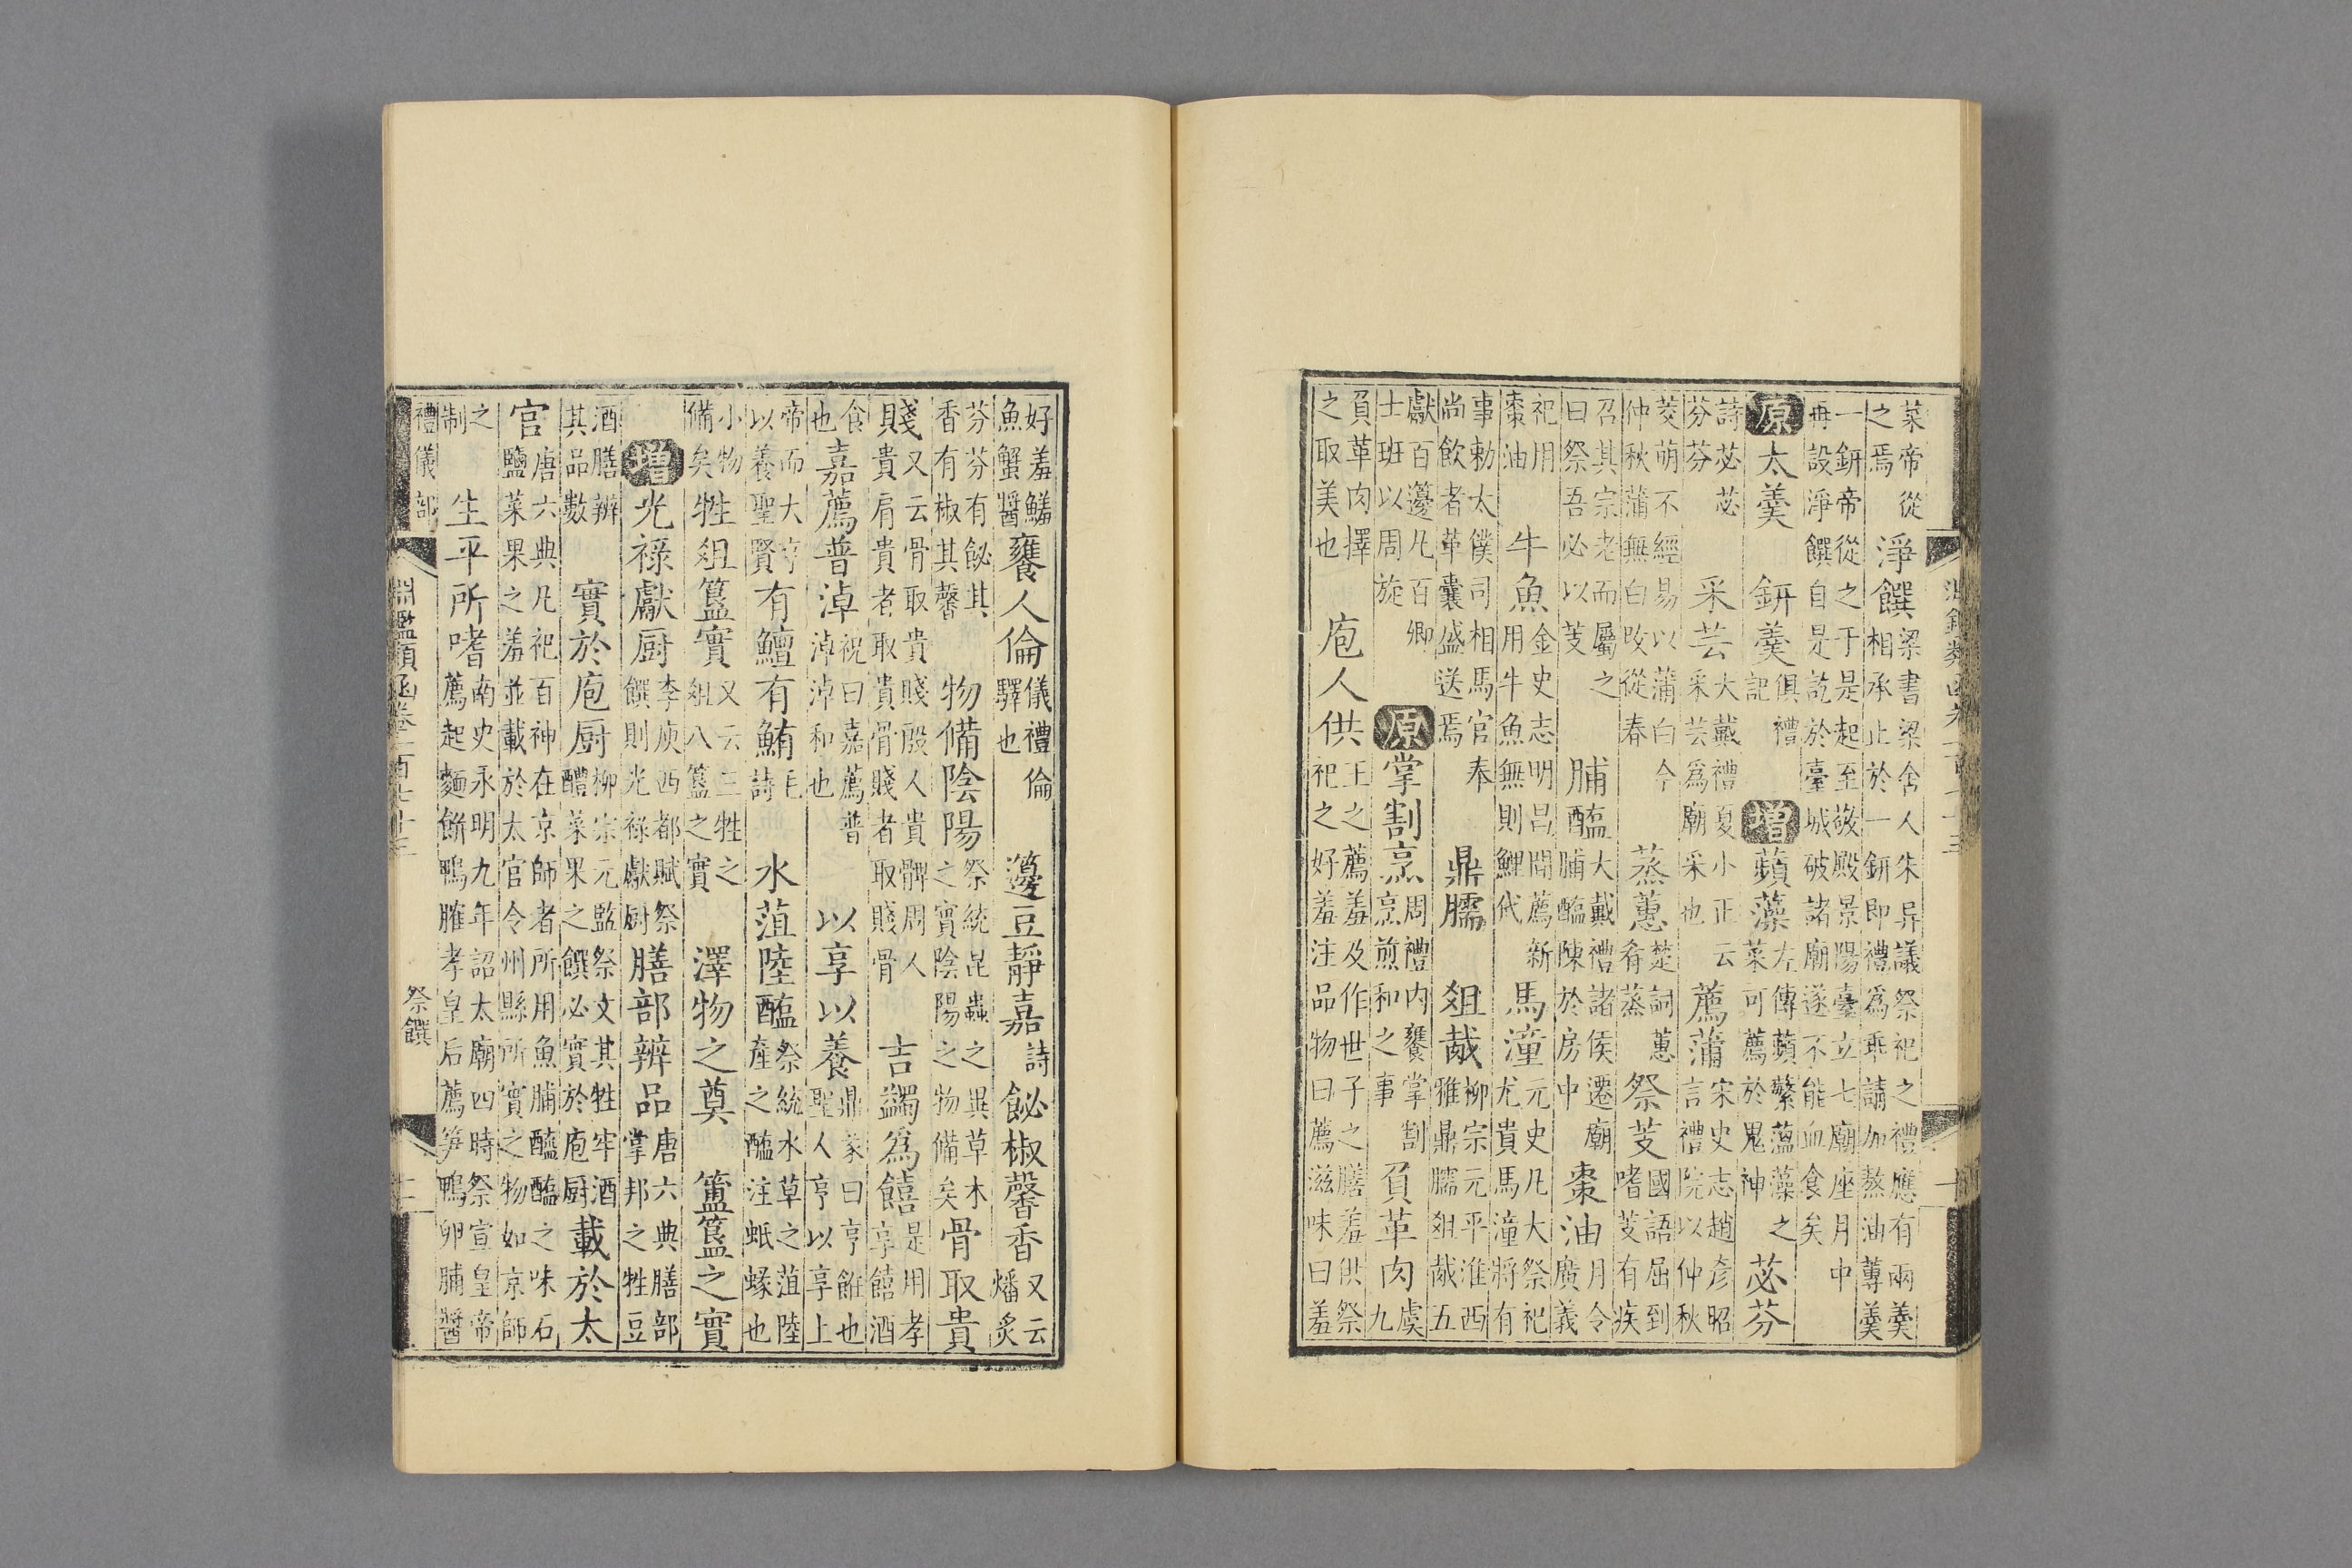 菜帝從
之焉
淨饌
梁書梁舍人朱异議祭祀之禮應有兩羹
相承止於一鈃即禮為乖請加熬油蓴羹
一鈃帝從之于是起至敬殿景陽臺立七廟座月中
再設淨饌自是訖於臺城破諸廟遂不能血食矣
原太羹 鈃羹
俱禮
記
增蘋藻
左傳蘋蘩薀藻之
菜可薦於鬼神
苾芬
詩苾苾
芬芬
采芸
大戴禮夏小正云
采芸為廟采也
薦蒲
宋史志趙彥昭
言禮院以仲秋
茭萌不經易以蒲白今
仲秋蒲無白改從春
蒸蕙
楚詞蕙
肴蒸
祭芰
國語屈到
嗜芰有疾
召其宗老而屬之
曰祭吾必以芰
脯醢
大戴禮諸侯遷廟
脯醢陳於房中
棗油
月令
廣義
祀用
棗油
牛魚
金史志明昌間薦新
用牛魚魚無則鯉代
馬潼
元史凡大祭祀
尤貴馬潼將有
事勅太僕司相馬官奉
尚飲者革囊盛送焉
鼎臑 俎胾
柳宗元平淮西
雅鼎臑俎胾五
獻百籩凡百卿
士班以周旋
原掌割烹
周禮內饔掌割
烹煎和之事
負革肉
虞
九
負革肉擇
之取美也
庖人供
王之薦羞及作世子之膳羞供祭
祀之好羞注品物曰薦滋味曰羞
好羞鱐
魚蟹醬
饔人倫
儀禮倫
驛也
籩豆靜嘉
詩
飶椒馨香
又云
燔炙
芬芬有飶其
香有椒其馨
物備陰陽
祭統昆蟲之異草木
之實陰陽之物備矣
骨取貴
賤
又云骨取貴賤殷人貴髀周人
貴肩貴者取貴骨賤者取賤骨
吉蠲為饎
是用孝
享饎酒
食
也
嘉薦普淖
祝曰嘉薦普
淖淖和也
以享以養
鼎彖曰亨飪也
聖人亨以享上
帝而大亨
以養聖賢
有鱣有鮪
毛
詩
水菹陸醢
祭統水草之菹陸
產之醢注蚳蝝也
小物
備矣
牲俎簋實
又云三牲之
俎八簋之實
澤物之奠 簠簋之實
增光祿獻厨
李庾西都賦祭
饌則光祿獻厨
膳部辨品
唐六典膳部
掌邦之牲豆
酒膳辨
其品數
實於庖厨
柳宗元監祭文其牲牢酒
醴菜果之饌必實於庖厨
載於太
官
唐六典凡祀百神在京師者所用魚脯醢醯之味石
鹽菜果之羞並載於太官令州縣所實之物如京師
之
制
生平所嗜
南史永明九年詔太廟四時祭宣皇帝
薦起麵餅鴨臛孝皇后薦筍鴨卵脯醬
禮儀部
淵鑑類函卷一百七十三
祭饌
二